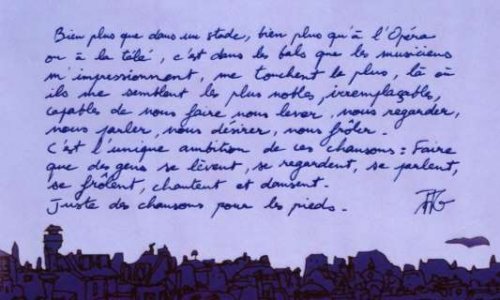 Bien plus que dans un stade, bien plus qu'à l'Opéra
ou à la télé, c'est dans les bals que les musiciens
m'impressionnent, me touchent le plus, là où
ils me semblent les plus nobles, irremplaçables,
capables de nous faire nous lever, nous regarder,
nous parler, nous désirer, nous frôler.
C'est l'unique ambition de ces chansons : Faire
que des gens se lèvent, se regardent, se parlent,
se frôlent, chantent et dansent.
Juste des chansons pour les pieds.